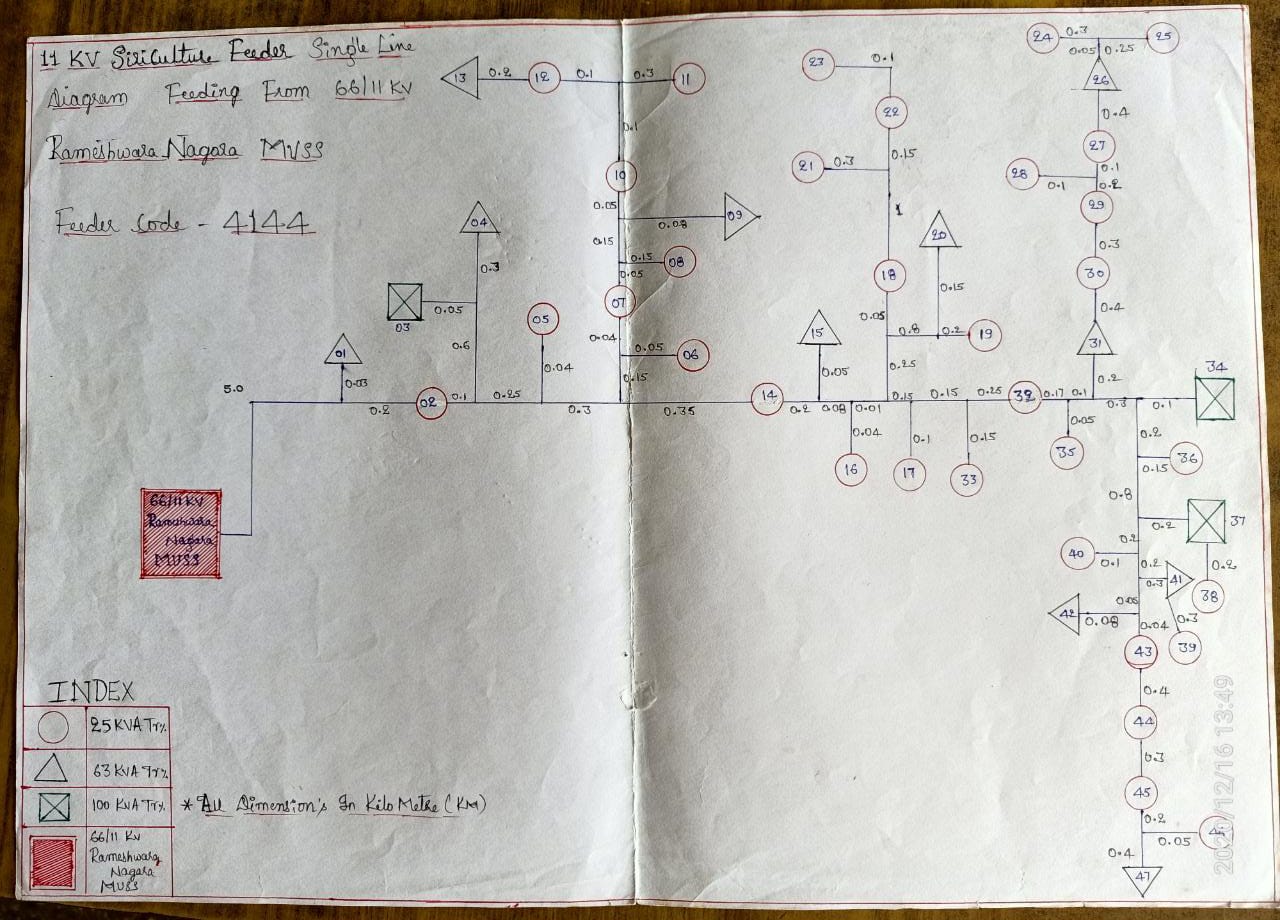 11 KV Siriculture Feeder Single Line
Diagram Feeding From 66/11 KV
Rameshwara Nagara MVSS
Feeder Code - 4144
24 0.3 25
0.05 0.25
26
0.4
27
0.1
28 0.1 0.2
29
0.3
30
0.4
31
0.2
23 0.1
22
0.15
21 0.3
1
18
0.05
20
0.15
0.8 0.2 19
0.25
13 0.2 12 0.1 0.3 11
0.1
10
0.05
0.08 09
0.15
0.15 08
0.05
07
0.04
0.05 06
0.15
04
0.3
03 0.05
0.6
05
0.04
01
0.03
15
0.05
34
5.0
0.2 02 0.1 0.25 0.3 0.35 14 0.2 0.08 0.01 0.15 0.15 0.25 32 0.17 0.1 0.3 0.1
0.04
16
0.1
17
0.15
33
0.05
35
0.2
0.15 36
0.8
0.2 37
0.2
38
0.2
40 0.1
0.2
0.3 41
0.3
39
0.05
42 0.08
0.04
43
0.4
44
0.3
45
0.2
0.05
0.4
47
66/11 KV
Rameshwara
Nagara
MUSS
INDEX
25 KVA Tr%
63 KVA Tr%
100 KVA Tr%
* All Dimension's In Kilo Metre (KM)
66/11 KV
Rameshwara
Nagara
MUSS
2020/12/16 13:49